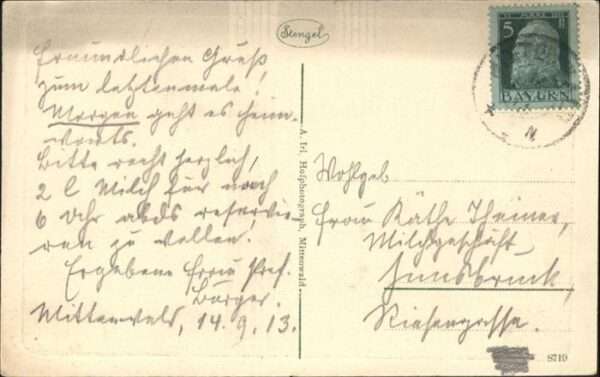 Stengel
5
BAYERN
Freundlichen Gruß
zum letztenmale!
Morgen geht es heim-
wärts.
Bitte recht herzlich,
2 l Milch für nach
6 Uhr abds reservie-
ren zu wollen.
Ergebene Frau Prof.
Burger.
Mittenwald, 14. 9. 13.
A. Irl, Hofphotograph, Mittenwald.
Wohlgeb.
Frau Käthe Theiner,
Milchgeschäft
Innsbruck,
Riesengasse.
8719